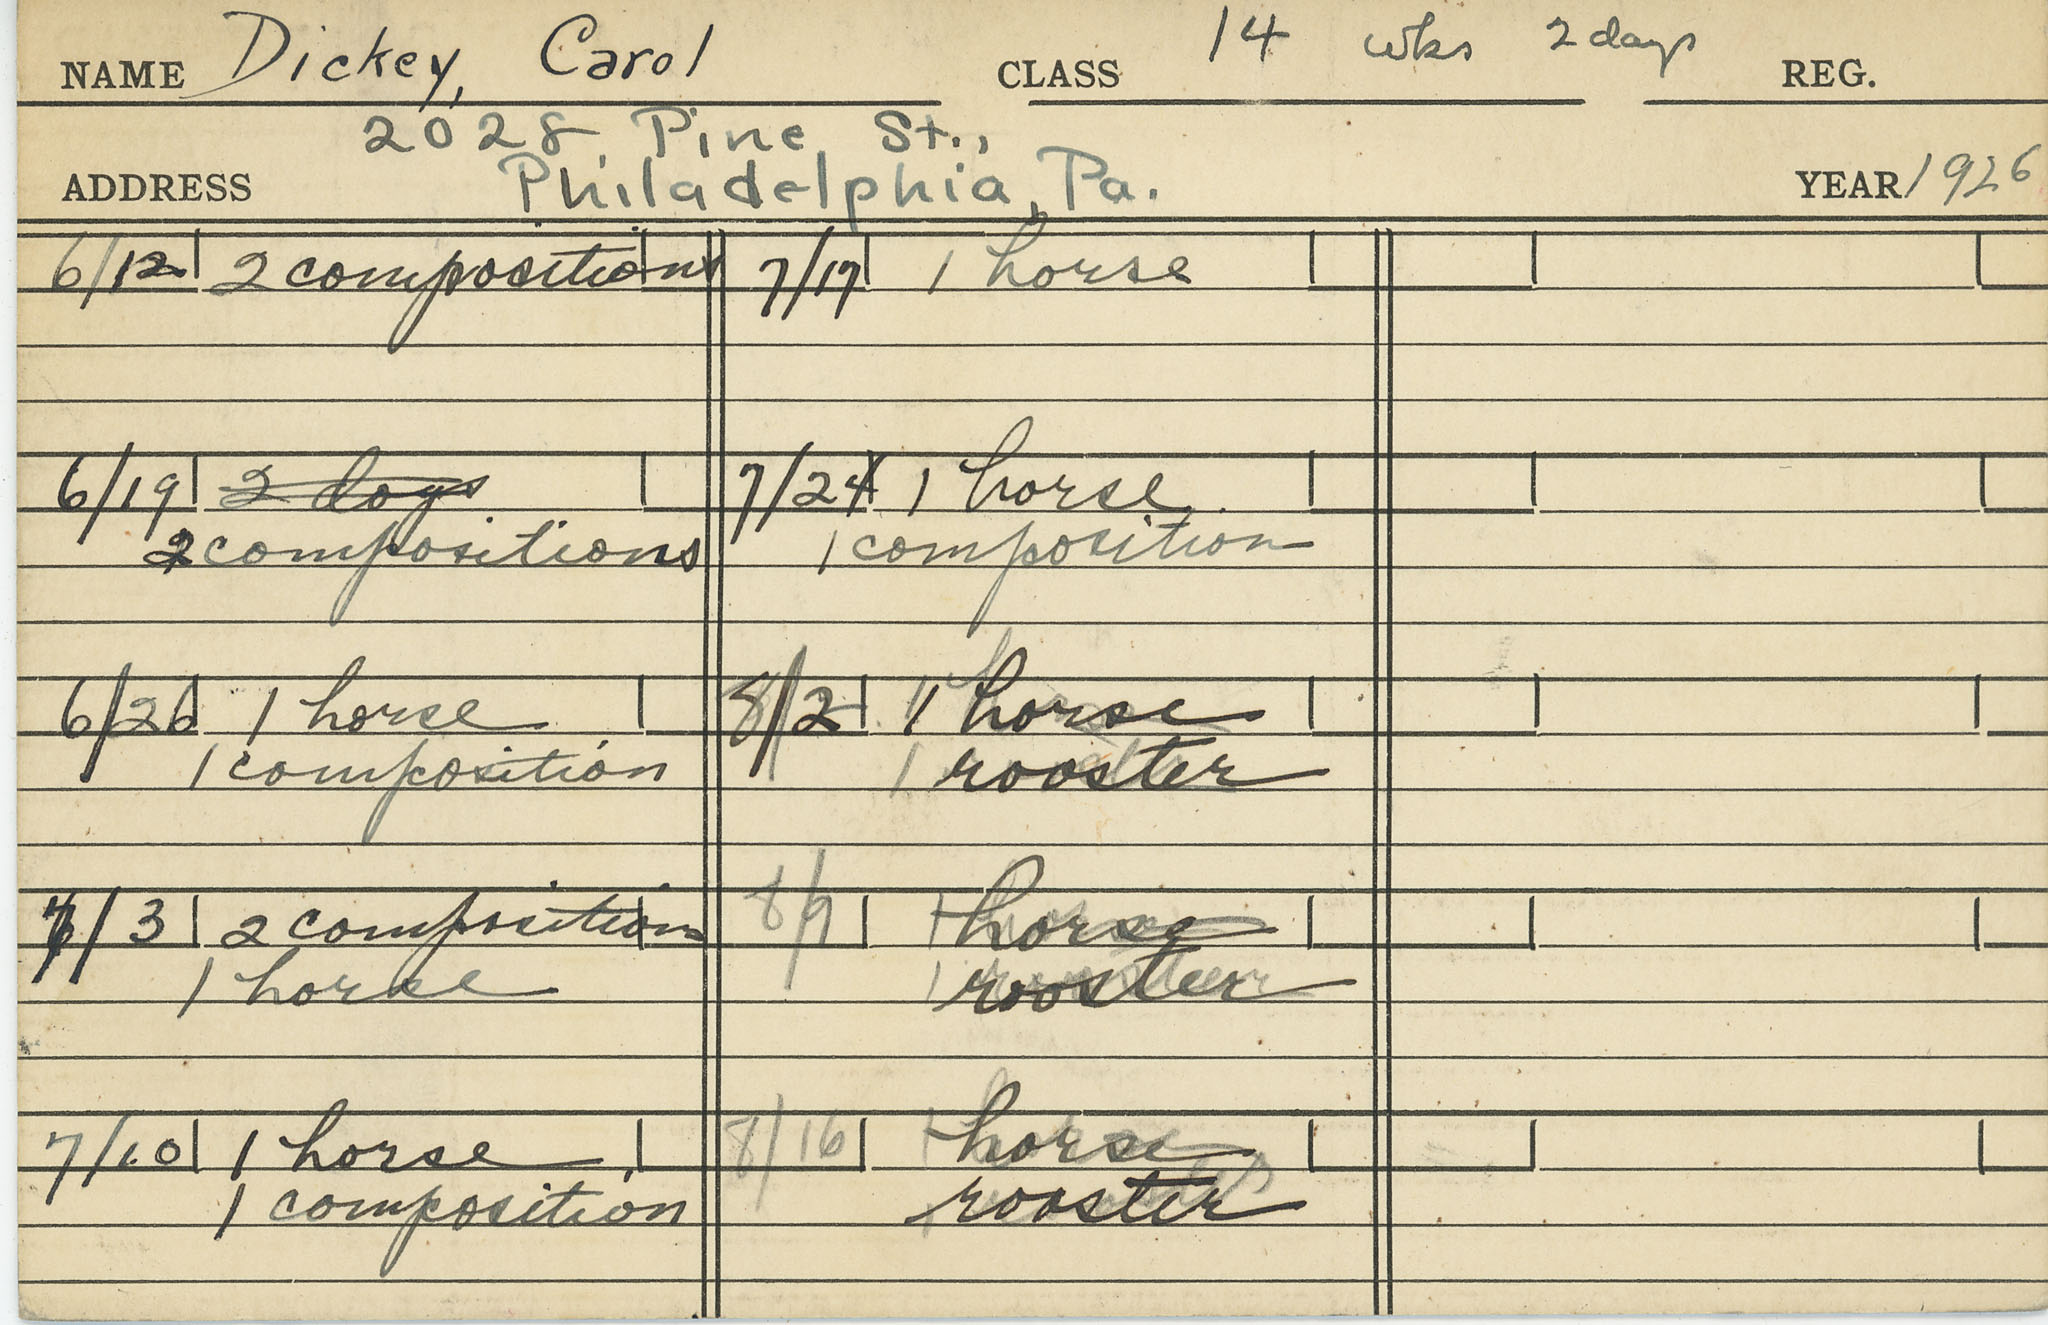 NAME Dickey, Carol CLASS 14 wks 2 days REG.
2028 Pine St.,
ADDRESS Philadelphia, Pa. YEAR 1926
6/12 2 compositions
6/19 2 dogs
2 compositions
6/26 1 horse
1 composition
7/3 2 compositions
1 horse
7/10 1 horse
1 composition
7/17 1 horse
7/24 1 horse
1 composition
8/2 1 horse
1 rooster
8/9 1 horse
1 rooster
8/16 1 horse
rooster